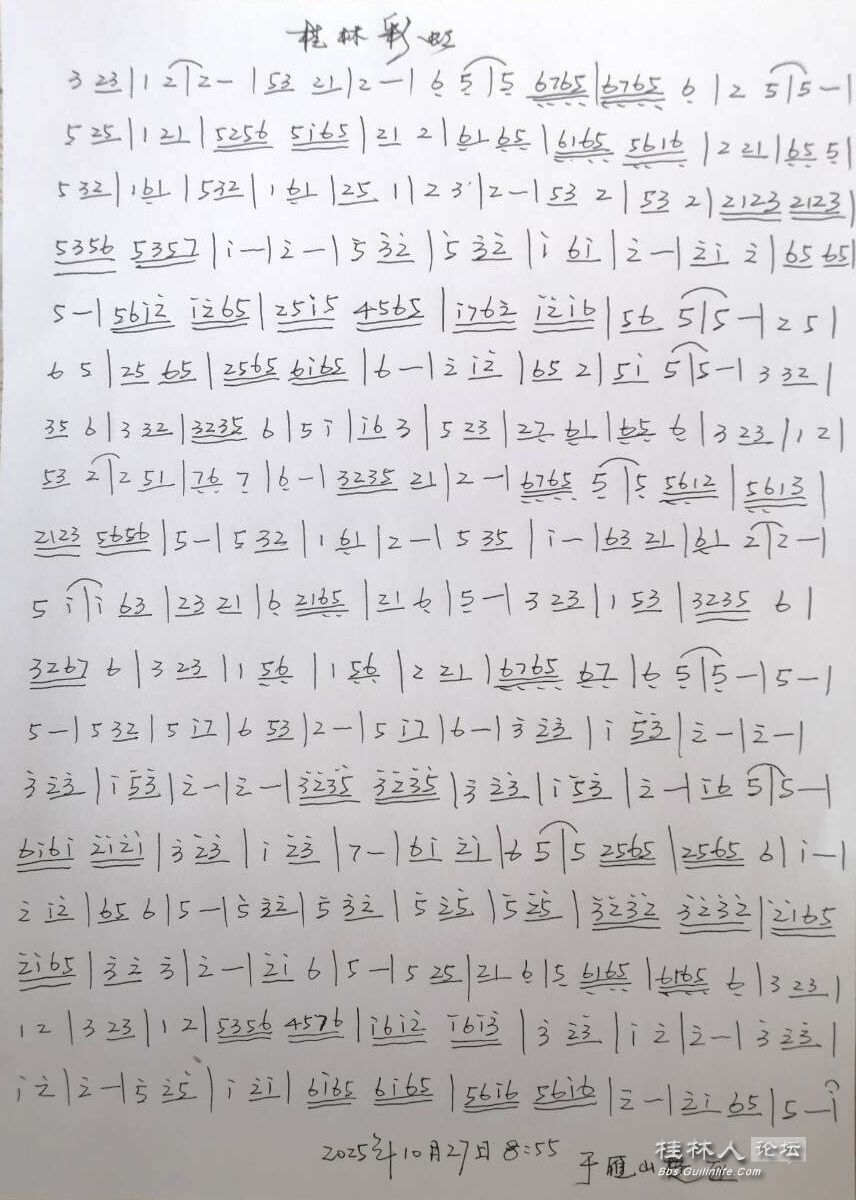 桂林彩虹
3 23|1 2|2-|53 21|2-|6 5|5 6765|6765 6|2 5|5-|
5 25|1 21|5256 5i65|21 2|61 65|6165 5616|2 21|65 5|
5 32|1 61|532|1 61|25 1|2 3|2-|53 2|53 2|2123 2123|
5356 5357|i-|2̇-|5̇ 3̇2̇|5̇ 3̇2̇|i 6i|2̇-|2̇i 2̇|65 65|
5-|56i2̇ i2̇65|25i5 4565|i762̇ i2̇i6|56 5|5-|2 5|
6 5|25 65|2565 6i65|6-|2̇ i2̇|65 2|5i 5|5-|3 32|
35 6|3 32|3235 6|5 i|i6 3|5 23|27 61|65 6|3 23|1 2|
53 2|2 51|76 7|6-|3235 21|2-|6765 5|5 5612|5613|
2123 5656|5-|5 32|1 61|2-|5 35|i-|63 21|61 2|2-|
5 i|i 63|23 21|6 2165|21 6|5-|3 23|1 53|3235 6|
3267 6|3 23|1 56|1 56|2 21|6765 67|6 5|5-|5-|
5-|5 32|5 i7|6 53|2-|5 i7|6-|3̇ 2̇3̇|i 5̇3̇|2̇-|2̇-|
3̇ 2̇3̇|i 5̇3̇|2̇-|2̇-|3̇2̇3̇5̇ 3̇2̇3̇5̇|3̇ 2̇3̇|i 5̇3̇|2̇-|i6 5|5-|
6i6i 2̇i2̇i|3̇ 2̇3̇|i 2̇3̇|7-|6i 2̇i|6 5|5 2565|2565 6|i-|
2̇ i2̇|65 6|5-|5̇ 3̇2̇|5̇ 3̇2̇|5̇ 2̇5̇|5̇ 2̇5̇|3̇2̇3̇2̇ 3̇2̇3̇2̇|2̇i65
2̇i65|3̇2̇ 3̇|2̇-|2̇i 6|5-|5 25|21 6|5 6165|6165 6|3 23|
1 2|3 23|1 2|5356 4576|i6i2̇ i6i3̇|3̇ 2̇3̇|i 2̇|2̇-|3̇ 2̇3̇|
i 2̇|2̇-|5̇ 2̇5̇|i 2̇i|6i65 6i65|56i6 56i6|2̇-|2̇i 65|5-i
2025年10月27日 8:55
于雁山
桂林人论坛
Bbs.Guilinlife.Com